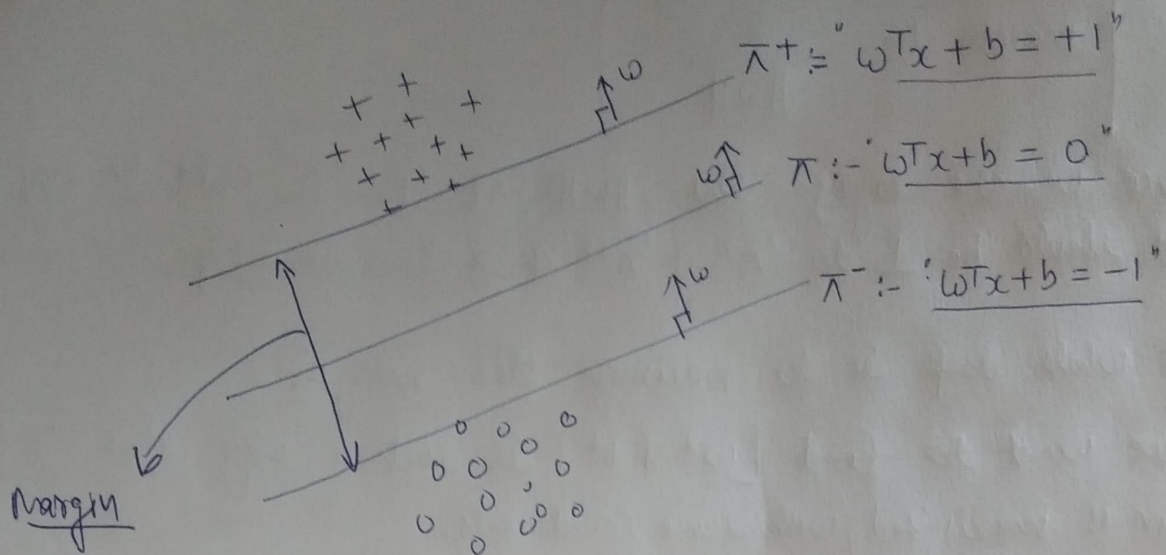 π⁺ :- "ωᵀx + b = +1"
ω
π :- "ωᵀx + b = 0"
ω
π⁻ :- "ωᵀx + b = -1"
ω
Margin